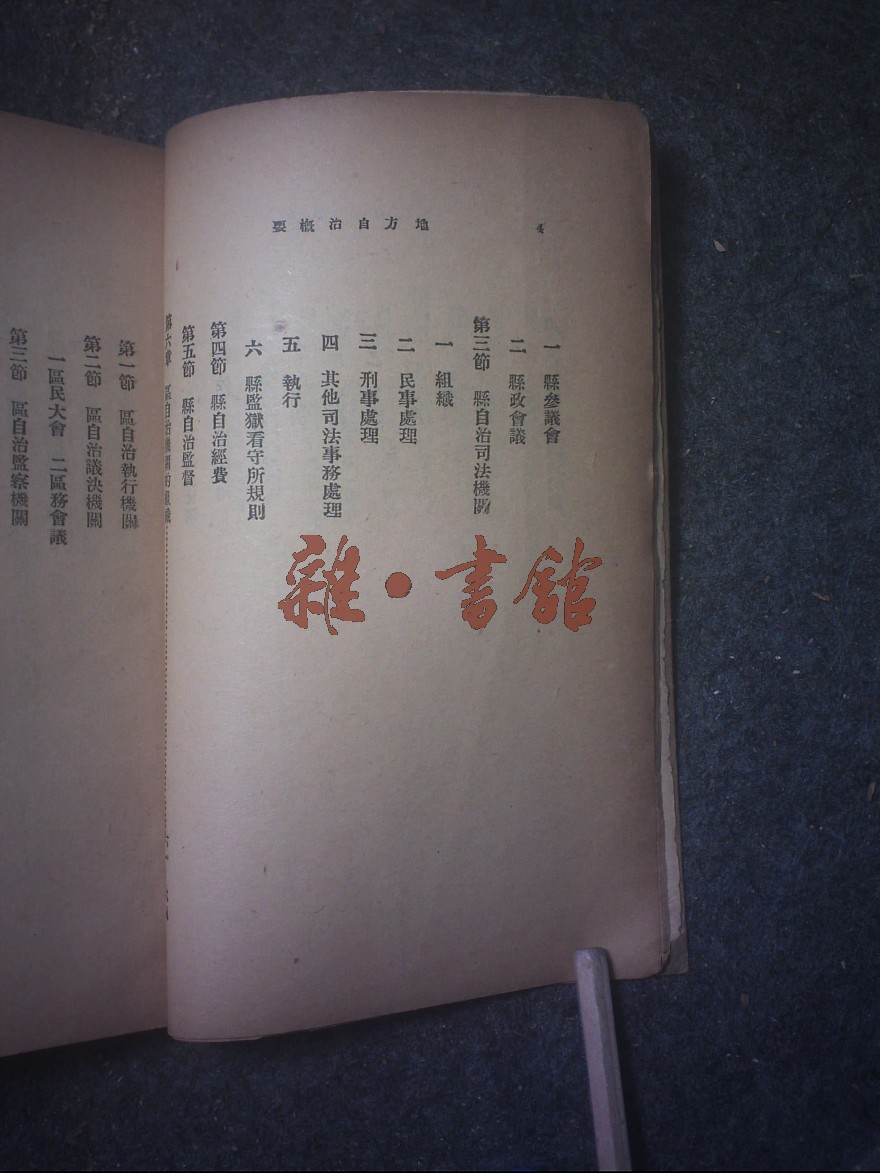 地方自治概要
4
一 縣參議會
二 縣政會議
第三節 縣自治司法機關
一 組織
二 民事處理
三 刑事處理
四 其他司法事務處理
五 執行
六 縣監獄看守所規則
第四節 縣自治經費
第五節 縣自治監督
第六章 區自治機關的組織
第一節 區自治執行機關
第二節 區自治議決機關
一區民大會 二區務會議
第三節 區自治監察機關
雜·書館